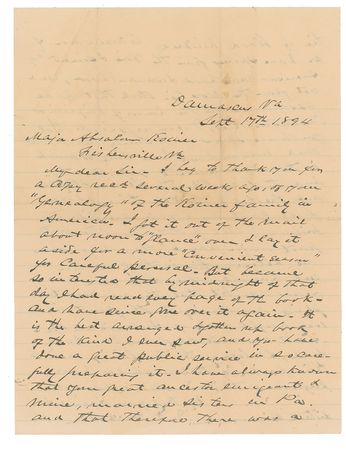 Damascus Va
Sept 17th 1894
Major Absalom Koiner
Fishersville Va
My dear Sir - I beg to thank you for
a copy rec'd several weeks ago of your
"Genealogy" of the Koiner family in
America. I got it out of the mail
about noon to "glance" over & lay it
aside for a more "convenient season"
for careful perusal. But became
so interested that by midnight of that
day I had read every page of the book -
and have since gone over it again - It
is the best arranged & gotten up book
of the kind I ever saw, and you have
done a great public service in so care-
fully preparing it. I have always known
that your great ancestor emigrant &
mine, married sisters in Pa.
and that therefore there was a